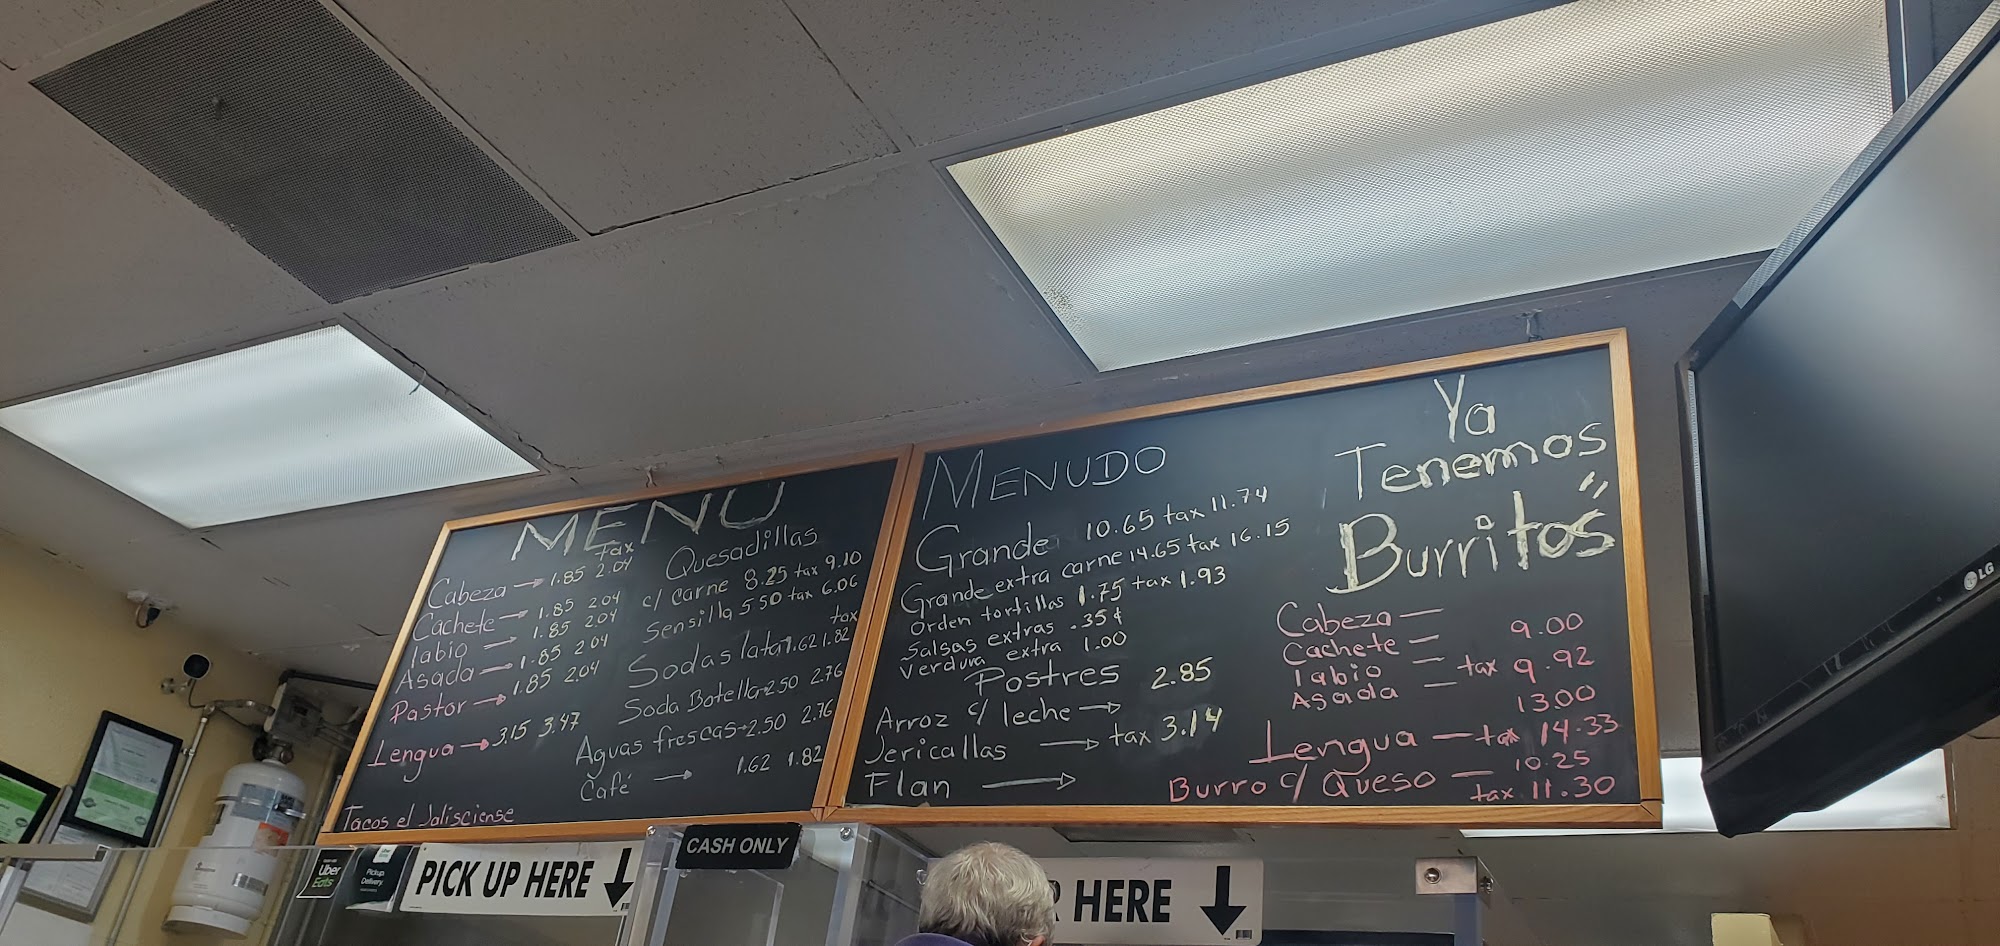 MENU
tax
Cabeza → 1.85 2.04
Cachete → 1.85 2.04
labio → 1.85 2.04
Asada → 1.85 2.04
Pastor → 1.85 2.04
Lengua → 3.15 3.47
Tacos el Jalisciense
Quesadillas
c/ carne 8.25 tax 9.10
Sensilla 5 50 tax 6.06
tax
Sodas lata 1.62 1.82
Soda Botella → 2 50 2.76
Aguas frescas → 2.50 2.76
Café → 1.62 1.82
MENUDO
Grande 10.65 tax 11.74
Grande extra carne 14.65 tax 16.15
Orden tortillas 1.75 tax 1.93
Salsas extras .35¢
verdura extra 1.00
Postres 2.85
Arroz c/ leche →
Jericallas → tax 3.14
Flan →
Ya
Tenemos
Burritos"
Cabeza —
Cachete — 9.00
labio — tax 9.92
Asada —
13.00
Lengua — tax 14.33
10.25
Burro c/ Queso — tax 11.30
LG
Uber
Eats
Pickup
Delivery
PICK UP HERE
CASH ONLY
R HERE